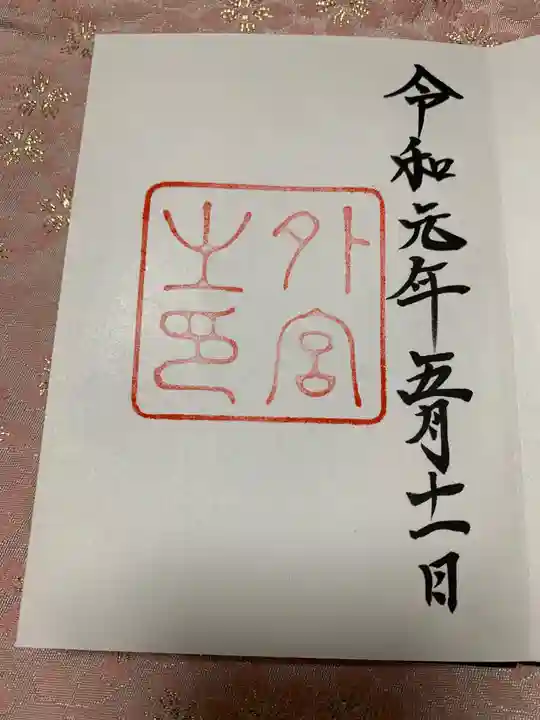 令和元年五月十一日
外宮
之印